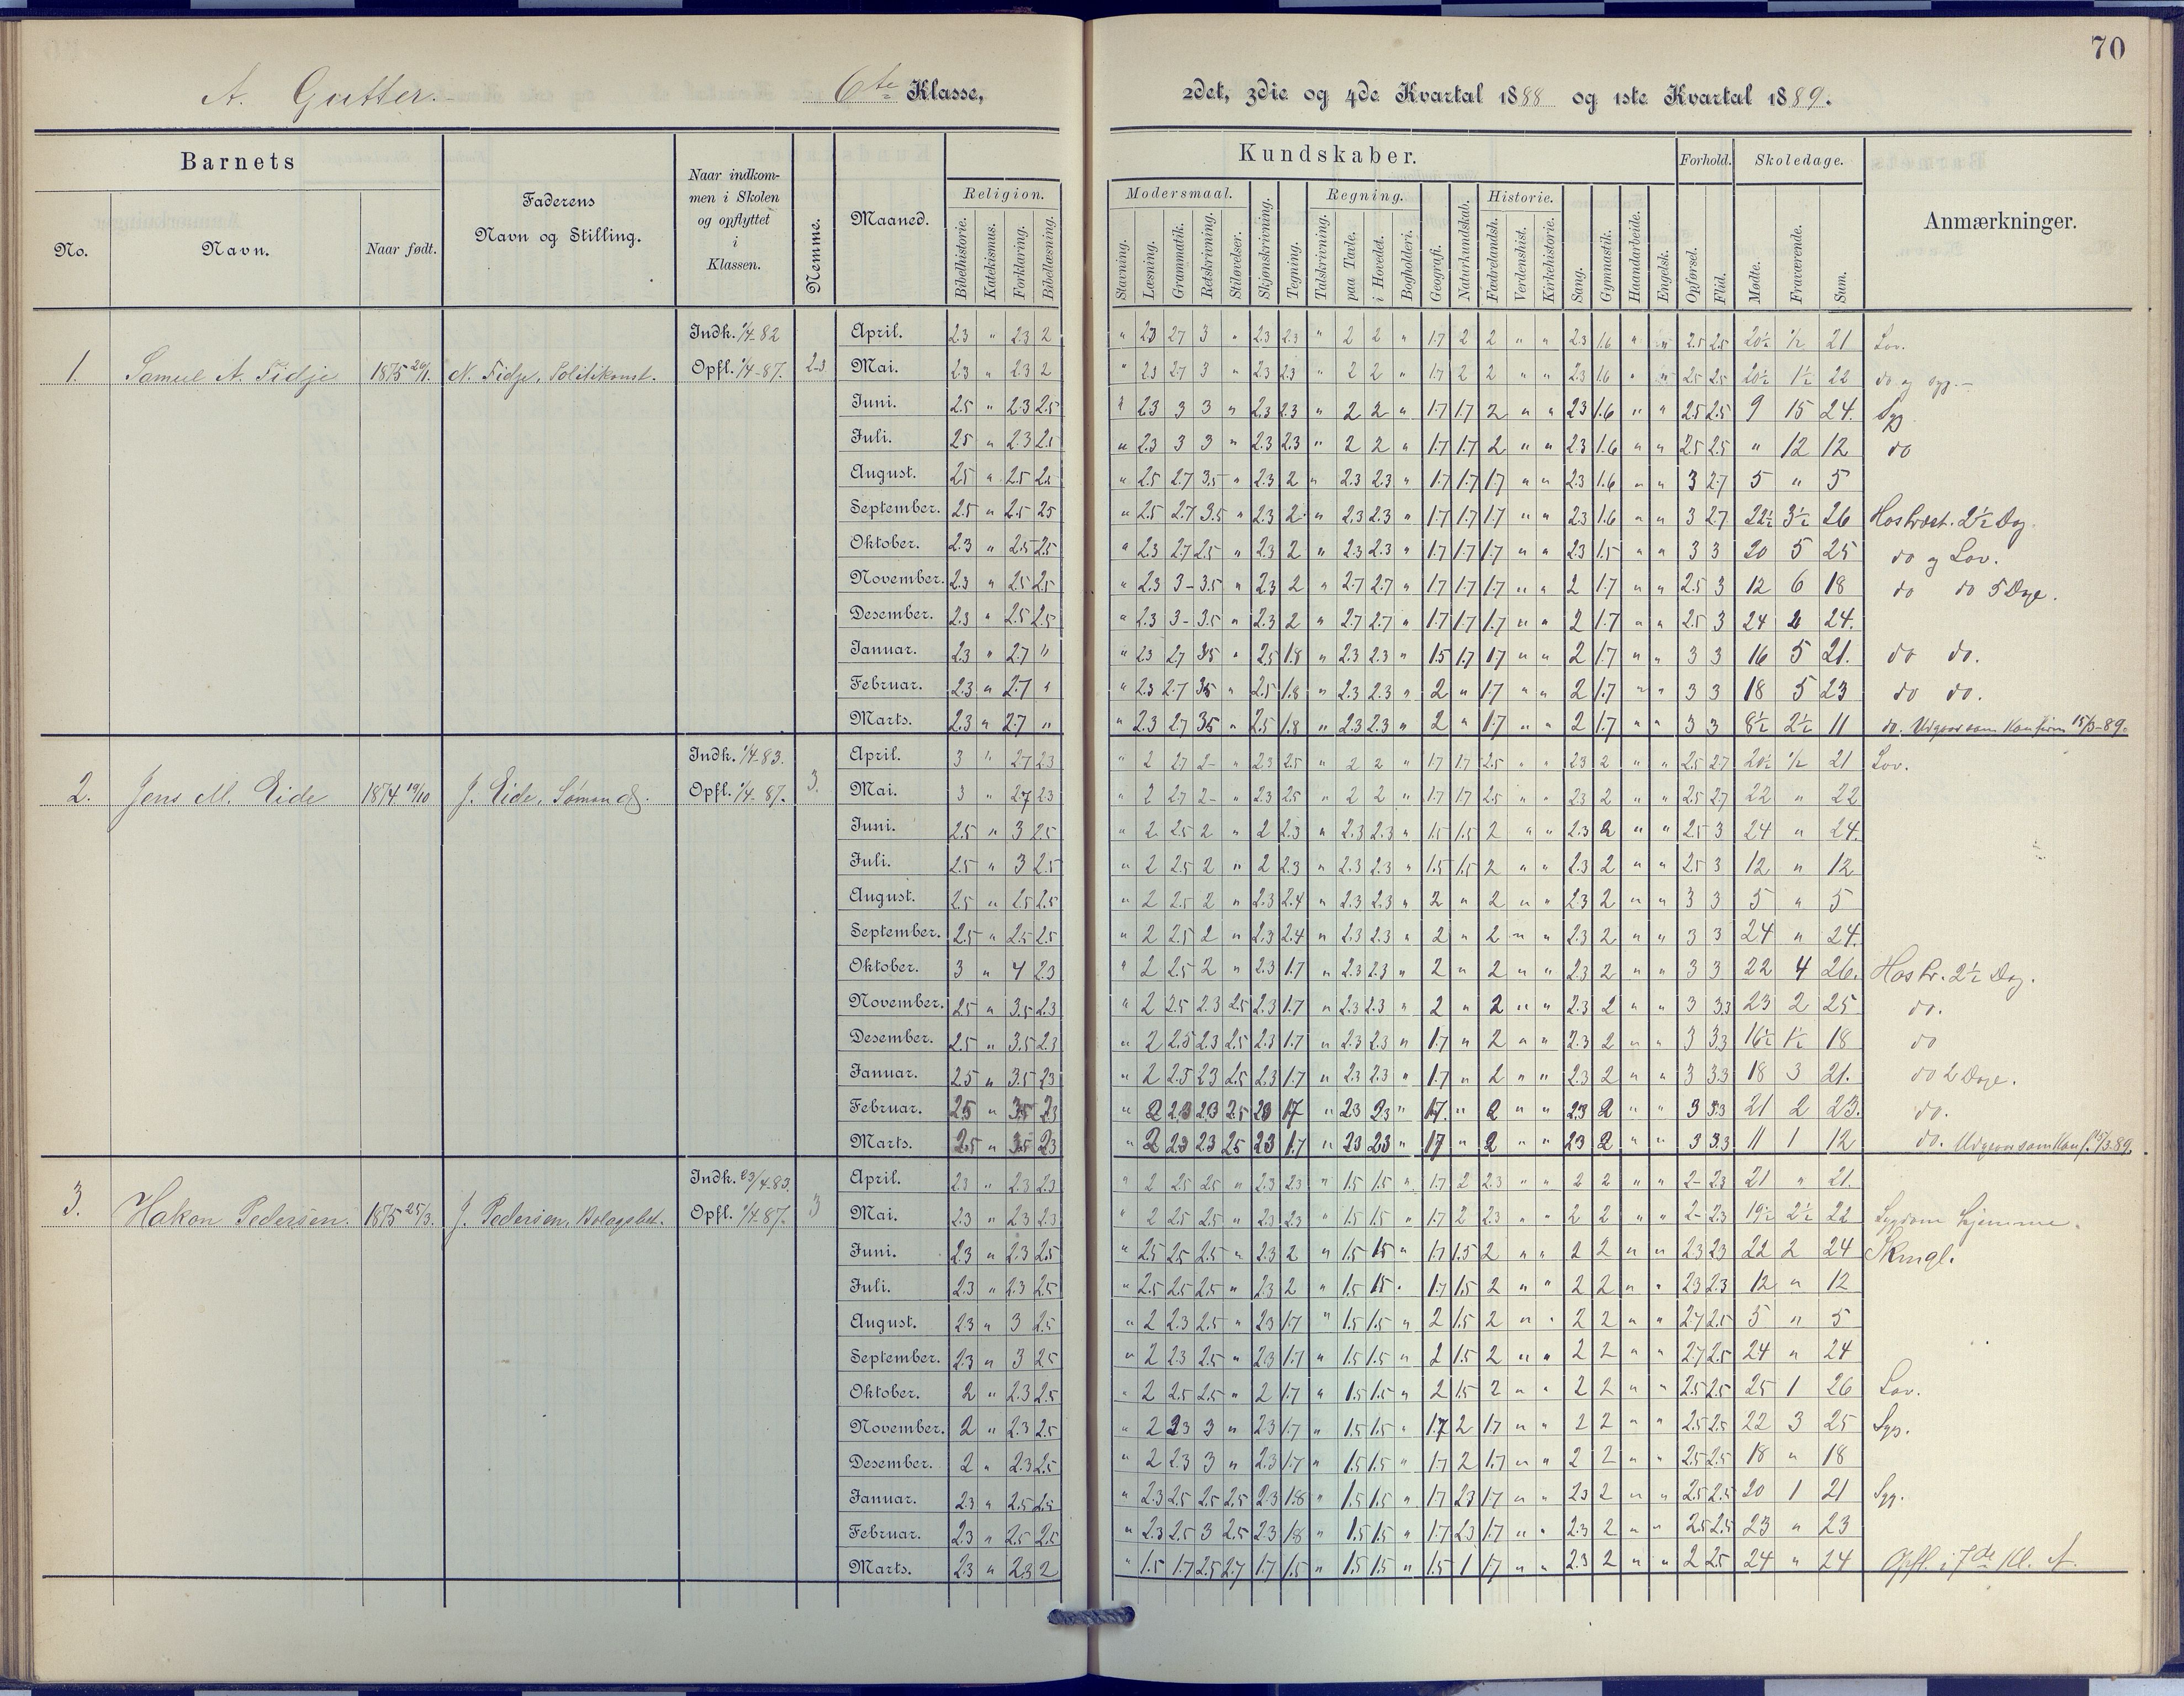 70
A. Gutter. 6te Klasse, 2det, 3die og 4de Kvartal 1888 og 1ste Kvartal 1889.
Barnets
No.
Navn.
Naar født.
Faderens
Navn og Stilling.
Naar indkom-
men i Skolen
og opflyttet
i
Klassen.
Nemme.
Maaned.
Kundskaber.
Religion.
Bibelhistorie.
Katekismus.
Forklaring.
Bibellæsning.
Modersmaal.
Stavning.
Læsning.
Grammatik.
Retskrivning.
Stiløvelser.
Skjønskrivning.
Tegning.
Regning.
Talskrivning.
paa Tavle.
i Hovedet.
Bogholderi.
Geografi.
Naturkundskab.
Historie.
Fædrelandsh.
Verdenshist.
Kirkehistorie.
Sang.
Gymnastik.
Haandarbeide.
Engelsk.
Forhold.
Opførsel.
Flid.
Skoledage.
Mødte.
Fraværende.
Sum.
Anmærkninger.
1. Samuel A. Fidje 1875 20/1. N. Fidje, Politikonst. Indk. 1/4-82 Opfl. 1/4-87. 2-3
April. 2.3 " 2.3 2 " 2.3 2.7 3 " 2.3 2.3 " 2 2 " 1.7 2 2 " " 2.3 1.6 " " 2.5 2.5 20½ ½ 21 Lov.
Mai. 2.3 " 2.3 2 " 2.3 2.7 3 " 2.3 2.3 " 2 2 " 1.7 2 2 " " 2.3 1.6 " " 2.5 2.5 20½ 1½ 22 do og syg.-
Juni. 2.5 " 2.3 2.5 " 2.3 3 3 " 2.3 2.3 " 2 2 " 1.7 1.7 2 " " 2.3 1.6 " " 2.5 2.5 9 15 24. Syg
Juli. 2.5 " 2.3 2.5 " 2.3 3 3 " 2.3 2.3 " 2 2 " 1.7 1.7 2 " " 2.3 1.6 " " 2.5 2.5 " 12 12 do
August. 2.5 " 2.5 2.5 " 2.5 2.7 3.5 " 2.3 2 " 2.3 2.3 " 1.7 1.7 1.7 " " 2.3 1.6 " " 3 2.7 5 " 5
September. 2.5 " 2.5 2.5 " 2.5 2.7 3.5 " 2.3 2 " 2.3 2.3 " 1.7 1.7 1.7 " " 2.3 1.6 " " 3 2.7 22½ 3½ 26 Hos Præst. 2½ Dag.
Oktober. 2.3 " 2.5 2.5 " 2.3 2.7 2.5 " 2.3 2 " 2.3 2.3 " 1.7 1.7 1.7 " " 2.3 1.5 " " 3 3 20 5 25 do og Lov.
November. 2.3 " 2.5 2.5 " 2.3 3- 3.5 " 2.3 2 " 2.7 2.7 " 1.7 1.7 1.7 " " 2 1.7 " " 2.5 3 12 6 18 do do 5 Dage.
Desember. 2.3 " 2.5 2.5 " 2.3 3- 3.5 " 2.3 2 " 2.7 2.7 " 1.7 1.7 1.7 " " 2 1.7 " " 2.5 3 24 24.
Januar. 2.3 " 2.7 " " 2.3 2.7 3.5 " 2.5 1.8 " 2.3 2.3 " 1.5 1.7 1.7 " " 2 1.7 " " 3 3 16 5 21. do do.
Februar. 2.3 " 2.7 " " 2.3 2.7 3.5 " 2.5 1.8 " 2.3 2.3 " 2 " 1.7 " " 2 1.7 " " 3 3 18 5 23 do do.
Marts. 2.3 " 2.7 " " 2.3 2.7 3.5 " 2.5 1.8 " 2.3 2.3 " 2 " 1.7 " " 2 1.7 " " 3 3 8½ 2½ 11 do. Udgaar som Konfirm 15/3-89.
2. Jens M. Eide 1874 19/10 J. Eide, Sømand. Indk. 1/4-83. Opfl. 1/4-87. 3.
April. 3 " 2.7 2.3 " 2 2.7 2- " 2.3 2.5 " 2 2 " 1.7 1.7 2.5 " " 2.3 2 " " 2.5 2.7 20½ ½ 21 Lov.
Mai. 3 " 2.7 2.3 " 2 2.7 2- " 2.3 2.5 " 2 2 " 1.7 1.7 2.5 " " 2.3 2 " " 2.5 2.7 22 " 22
Juni. 2.5 " 3 2.5 " 2 2.5 2 " 2 2.3 " 2.3 2.3 " 1.5 1.5 2 " " 2.3 2 " " 2.5 3 24 " 24.
Juli. 2.5 " 3 2.5 " 2 2.5 2 " 2 2.3 " 2.3 2.3 " 1.5 1.5 2 " " 2.3 2 " " 2.5 3 12 " 12
August. 2.5 " 2.5 2.5 " 2 2.5 2 " 2.3 2.4 " 2.3 2.3 " 2 " 2 " " 2.3 2 " " 3 3 5 " 5
September. 2.5 " 2.5 2.5 " 2 2.5 2 " 2.3 2.4 " 2.3 2.3 " 2 " 2 " " 2.3 2 " " 3 3 24 " 24.
Oktober. 3 " 4 2.3 " 2 2.5 2 " 2.3 1.7 " 2.3 2.3 " 2 " 2 " " 2.3 2 " " 3 3 22 4 26. Hos Pr. 2½ Dag.
November. 2.5 " 3.5 2.3 " 2 2.5 2.3 2.5 2.3 1.7 " 2.3 2.3 " 2 " 2 " " 2.3 2 " " 3 3.3 23 2 25 do.
Desember. 2.5 " 3.5 2.3 " 2 2.5 2.3 2.5 2.3 1.7 " 2.3 2.3 " 1.7 " 2 " " 2.3 2 " " 3 3.3 16½ 1½ 18 do
Januar. 2.5 " 3.5 2.3 " 2 2.5 2.3 2.5 2.3 1.7 " 2.3 2.3 " 1.7 " 2 " " 2.3 2 " " 3 3.3 18 3 21. do 2 Dage.
Februar. 2.5 " 3.5 2.3 " 2 2.3 2.3 2.5 2.3 1.7 " 2.3 2.3 " 1.7. " 2 " " 2.3 2 " " 3 3.3 21 2 23. do.
Marts. 2.5 " 3.5 2.3 " 2 2.3 2.3 2.5 2.3 1.7 " 2.3 2.3 " 1.7 " 2 " " 2.3 2 " " 3 3.3 11 1 12 do. Udgaar som Konf. 15/3.89.
3. Hakon Pedersen. 1875 25/3. J. Pedersen, Bolagsbet. Indk. 23/4-83. Opfl. 1/4-87. 3
April. 2.3 " 2.3 2.3 " 2 2.5 2.5 " 2.3 2.3 " 1.5 1.5 " 1.7 2 2.3 " " 2 2 " " 2- 2.3 21 " 21.
Mai. 2.3 " 2.3 2.3 " 2 2.5 2.5 " 2.3 2.3 " 1.5 1.5 " 1.7 2 2.3 " " 2 2 " " 2- 2.3 19½ 2½ 22 Sygdom hjemme.
Juni. 2.3 " 2.3 2.5 " 2.5 2.5 2.5 " 2.3 2 " 1.5 1.5 " 1.7 1.5 2 " " 2 2 " " 2.3 2.3 22 2 24 Skmgl.
Juli. 2.3 " 2.3 2.5 " 2.5 2.5 2.5 " 2.3 2 " 1.5 1.5 " 1.7 1.5 2 " " 2 2 " " 2.3 2.3 12 " 12
August. 2.3 " 3 2.5 " 2 2.3 2.5 " 2.3 1.7 " 1.5 1.5 " 2 1.5 2 " " 2 2 " " 2.7 2.5 5 " 5
September. 2.3 " 3 2.5 " 2 2.3 2.5 " 2.3 1.7 " 1.5 1.5 " 2 1.5 2 " " 2 2 " " 2.7 2.5 24 " 24
Oktober. 2 " 2.3 2.5 " 2 2.5 2.5 " 2 1.7 " 1.5 1.5 " 2 1.5 2 " " 2 2 " " 2.5 2.5 25 1 26 Lov.
November. 2 " 2.3 2.5 " 2 2.3 3 " 2.3 1.7 " 1.5 1.5 " 1.7 2 1.7 " " 2 2 " " 2.5 2.5 22 3 25 Syg.
Desember. 2 " 2.3 2.5 " 2 2.3 3 " 2.3 1.7 " 1.5 1.5 " 1.7 2 1.7 " " 2 2 " " 2.5 2.5 18 " 18
Januar. 2.3 " 2.5 2.5 " 2.3 2.5 2.5 2.5 2.3 1.8 " 1.5 1.5 " 1.7 2.3 1.7 " " 2.3 2 " " 2.5 2.5 20 1 21 Syg.
Februar. 2.3 " 2.5 2.5 " 2.3 2.5 3 2.5 2.3 1.8 " 1.5 1.5 " 1.7 2.3 1.7 " " 2.3 2 " " 2.5 2.5 23 " 23
Marts. 2.3 " 2.3 2 " 1.5 1.7 2.5 2.7 1.7 1.5 " 1.5 1.5 " 1.5 1 1.7 " " 2.3 2 " " 2 2.5 24 " 24 Opfl. i 7de Kl. A.